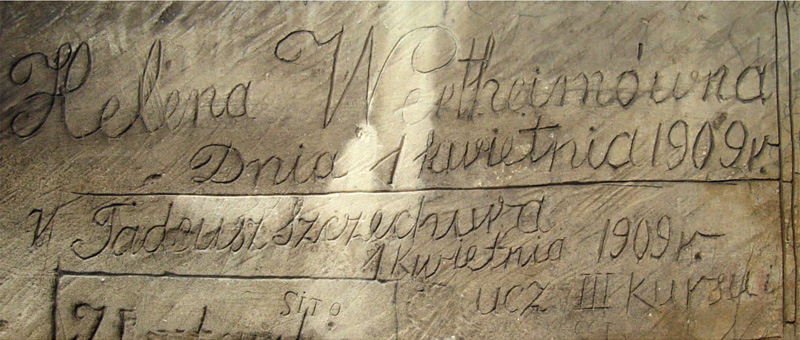 Helena Wertheimówna
Dnia 1 kwietnia 1909 r.
Tadeusz Szczechura
1 kwietnia 1909 r.
ucz III kursu
SITO